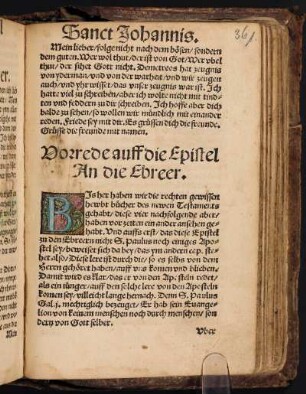 Sanct Johannis.
361
Mein lieber/ folge nicht nach dem bösen/ sondern
dem guten. Wer wol thut/ der ist von Got/ Wer vbel
thut/ der sihet Gott nicht. Demetrios hat zeugnis
von yderman/ vnd von der warheit/ vnd wir zeugen
auch/ vnd yhr wisset/ das vnser zeugnis war ist. Ich
hatte viel zu schreiben/ aber ich wolte nicht mit tindten
vnd feddern zu dir schreiben. Ich hoffe aber dich
balde zu sehen/ so wollen wir mündlich mit einander
reden. Friede sey mit dir. Es grüssen dich die freunde.
Grüsse die freunde mit namen.
Vorrede auff die Epistel
An die Ebreer.
Bis her haben wir die rechten gewissen
hewbt bücher des newen Testaments
gehabt/ diese vier nachfolgende aber/
haben vor zeyten ein ander ansehen gehabt.
Vnd auffs erst/ das diese Epistel
zu den Ebreern nicht S. Paulus noch einiges Apostel
sey/ beweiset sich da bey/ das ym andern cap. stehet
also/ Diese lere ist durch die/ so es selbs von dem
Herrn gehöret haben/ auff vns komen vnd blieben/
Damit wird es klar/ das er von den Aposteln redet/
als ein iünger/ auff den solche lere von den Aposteln
komen sey/ villeicht lange hernach. Denn S. Paulus
Gal. j. mechtiglich bezeuget/ Er hab sein Euangelion
von keinem menschen noch durch menschen/ sondern
von Gott selber.
Vber